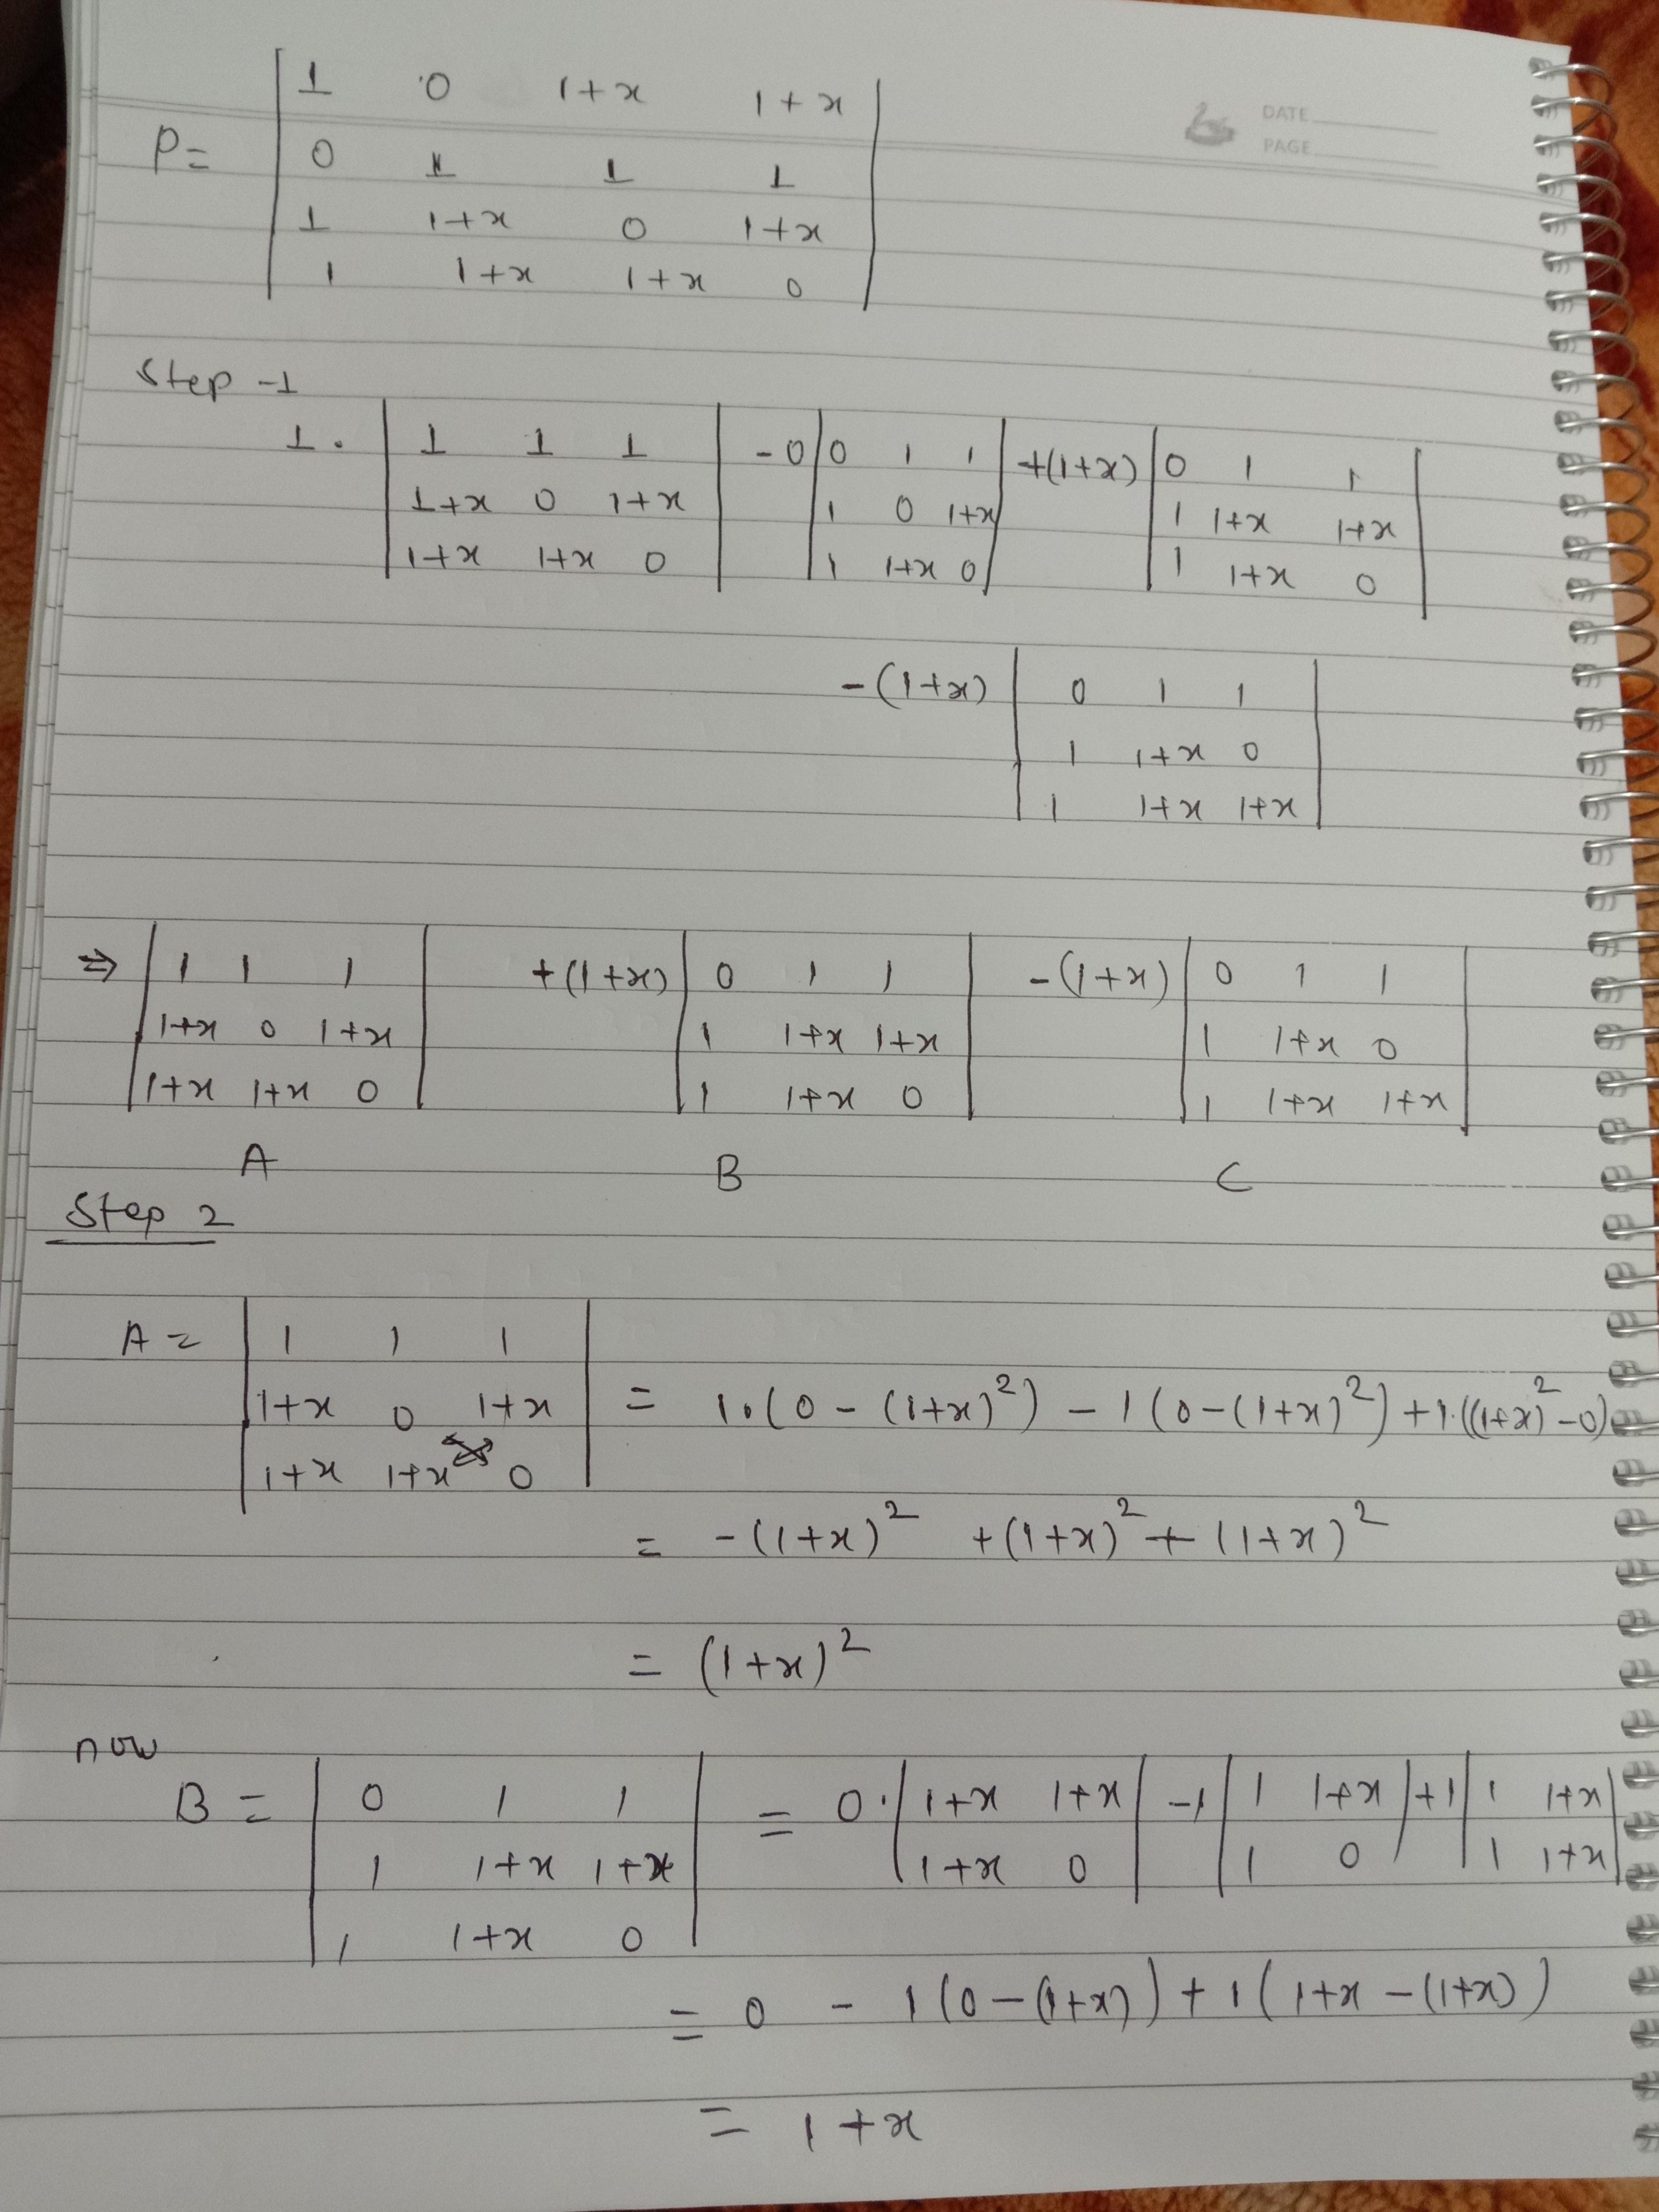 DATE
PAGE
P = | 1 0 1+x 1+x |
| 0 1 1 1 |
| 1 1+x 0 1+x |
| 1 1+x 1+x 0 |
Step -1
1. | 1 1 1 | -0 | 0 1 1 | +(1+x) | 0 1 1 |
| 1+x 0 1+x | | 1 0 1+x | | 1 1+x 1+x |
| 1+x 1+x 0 | | 1 1+x 0 | | 1 1+x 0 |
-(1+x) | 0 1 1 |
| 1 1+x 0 |
| 1 1+x 1+x |
⇒ | 1 1 1 | +(1+x) | 0 1 1 | -(1+x) | 0 1 1 |
| 1+x 0 1+x | | 1 1+x 1+x | | 1 1+x 0 |
| 1+x 1+x 0 | | 1 1+x 0 | | 1 1+x 1+x |
A B C
Step 2
A = | 1 1 1 |
| 1+x 0 1+x | = 1.(0 - (1+x)²) - 1(0-(1+x)²) + 1.((1+x)² - 0)
| 1+x 1+x 0 |
= -(1+x)² + (1+x)² + (1+x)²
= (1+x)²
now
B = | 0 1 1 | = 0. | 1+x 1+x | -1 | 1 1+x | +1 | 1 1+x |
| 1 1+x 1+x | | 1+x 0 | | 1 0 | | 1 1+x |
| 1 1+x 0 |
= 0 - 1(0-(1+x)) + 1(1+x-(1+x))
= 1+x